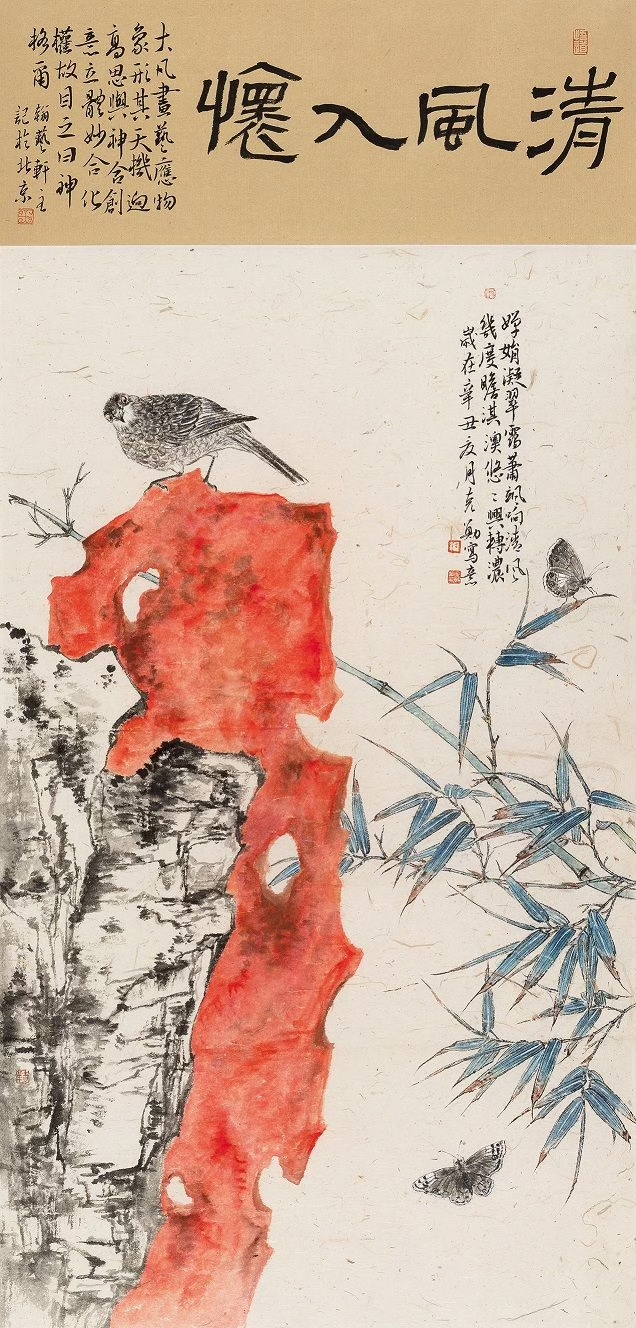 清風入懷
大凡畫藝應物
象形其天機迥
高思與神合創
意立體妙合化
權故目之曰神
格爾
翰藝軒主
記於北京
嬋娟凝翠蕭颯响清风
幾度瞻淇澳悠〻興轉濃
歲在辛丑夏月克勤寫意